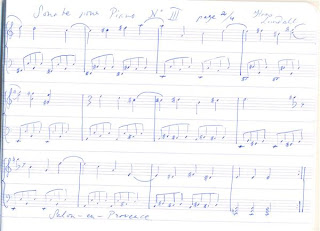 Sonate pour Piano N° III page 2/4 Hugo
Salon-en-Provence